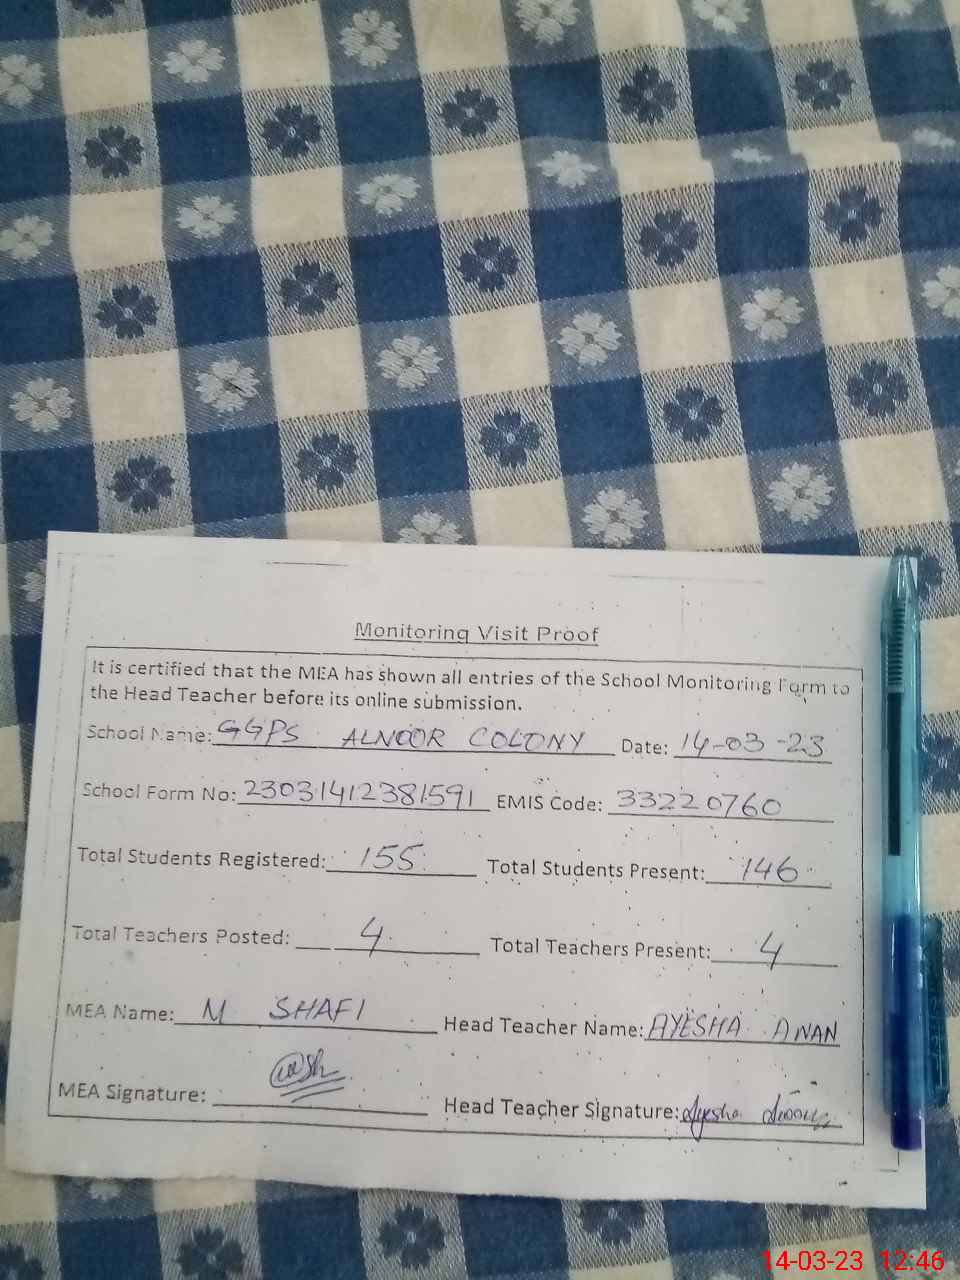 Monitoring Visit Proof
It is certified that the MEA has shown all entries of the School Monitoring Form to
the Head Teacher before its online submission.
School Name: GGPS ALNOOR COLONY Date: 14-03-23
School Form No: 23031412381591 EMIS Code: 33220760
Total Students Registered: 155 Total Students Present: 146
Total Teachers Posted: 4 Total Teachers Present: 4
MEA Name: M SHAFI Head Teacher Name: AYESHA ANAN
MEA Signature: Head Teacher Signature: Ayesha
14-03-23 12:46